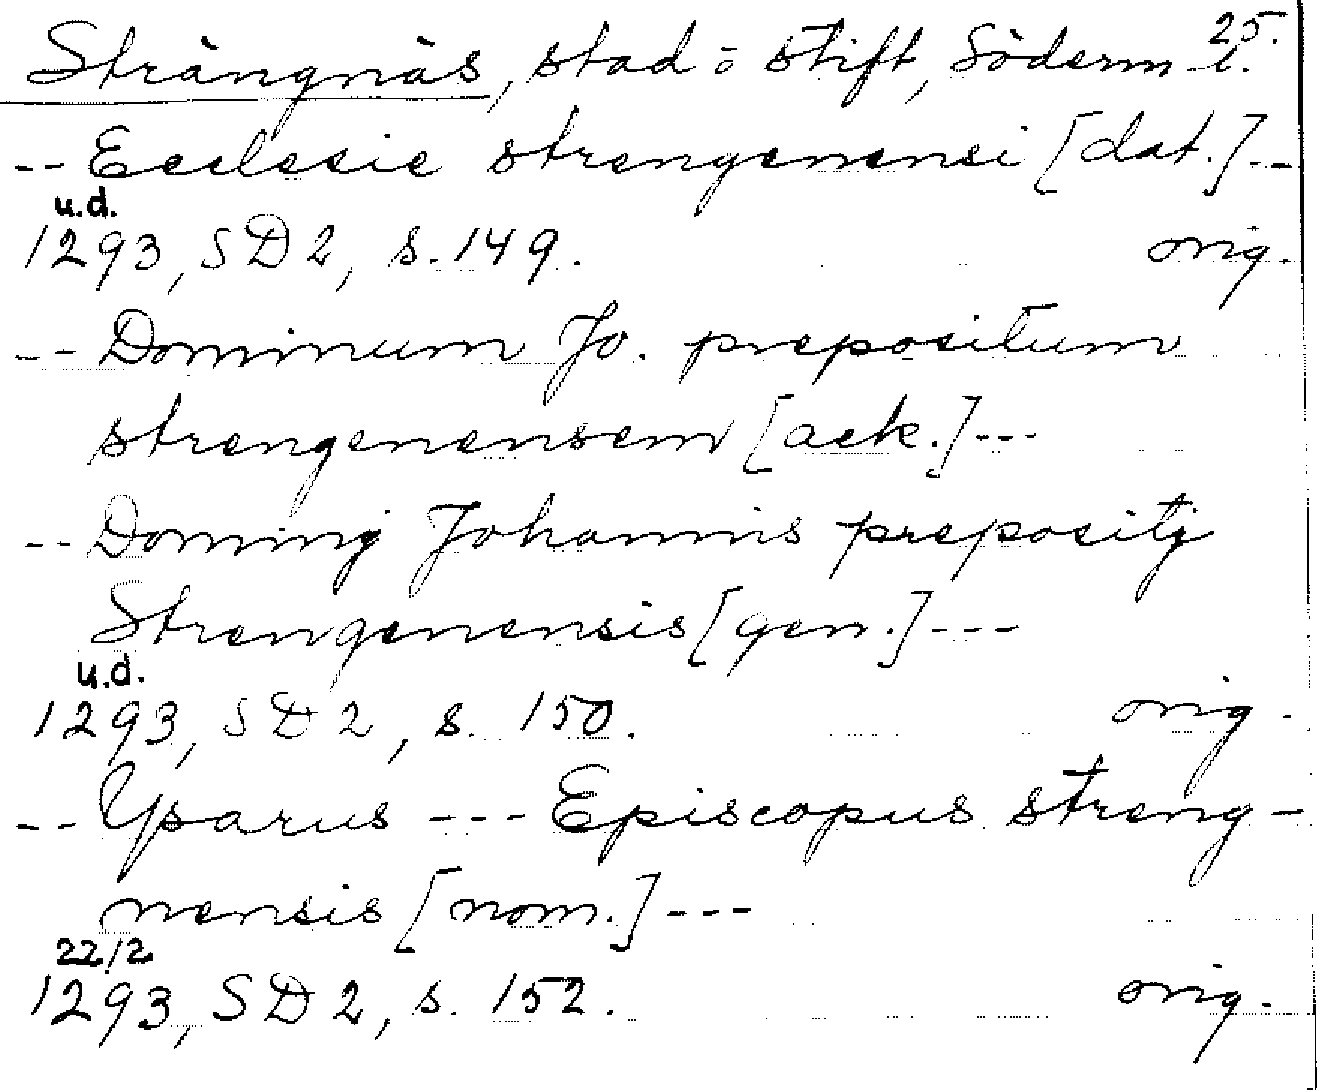 25.
Strängnäs, stad o stift, Söderm l.
-- Ecclesie strengenensi [dat.] --
u.d.
1293, SD 2, s. 149. orig.
-- Dominum Jo. prepositum
strengenensem [ack.] ---
-- Dominj Johannis prepositj
Strengenensis [gen.] ---
u.d.
1293, SD 2, s. 150. orig.
-- Ysarus --- Episcopus streng-
nensis [nom.] ---
22/2
1293, SD 2, s. 152. orig.